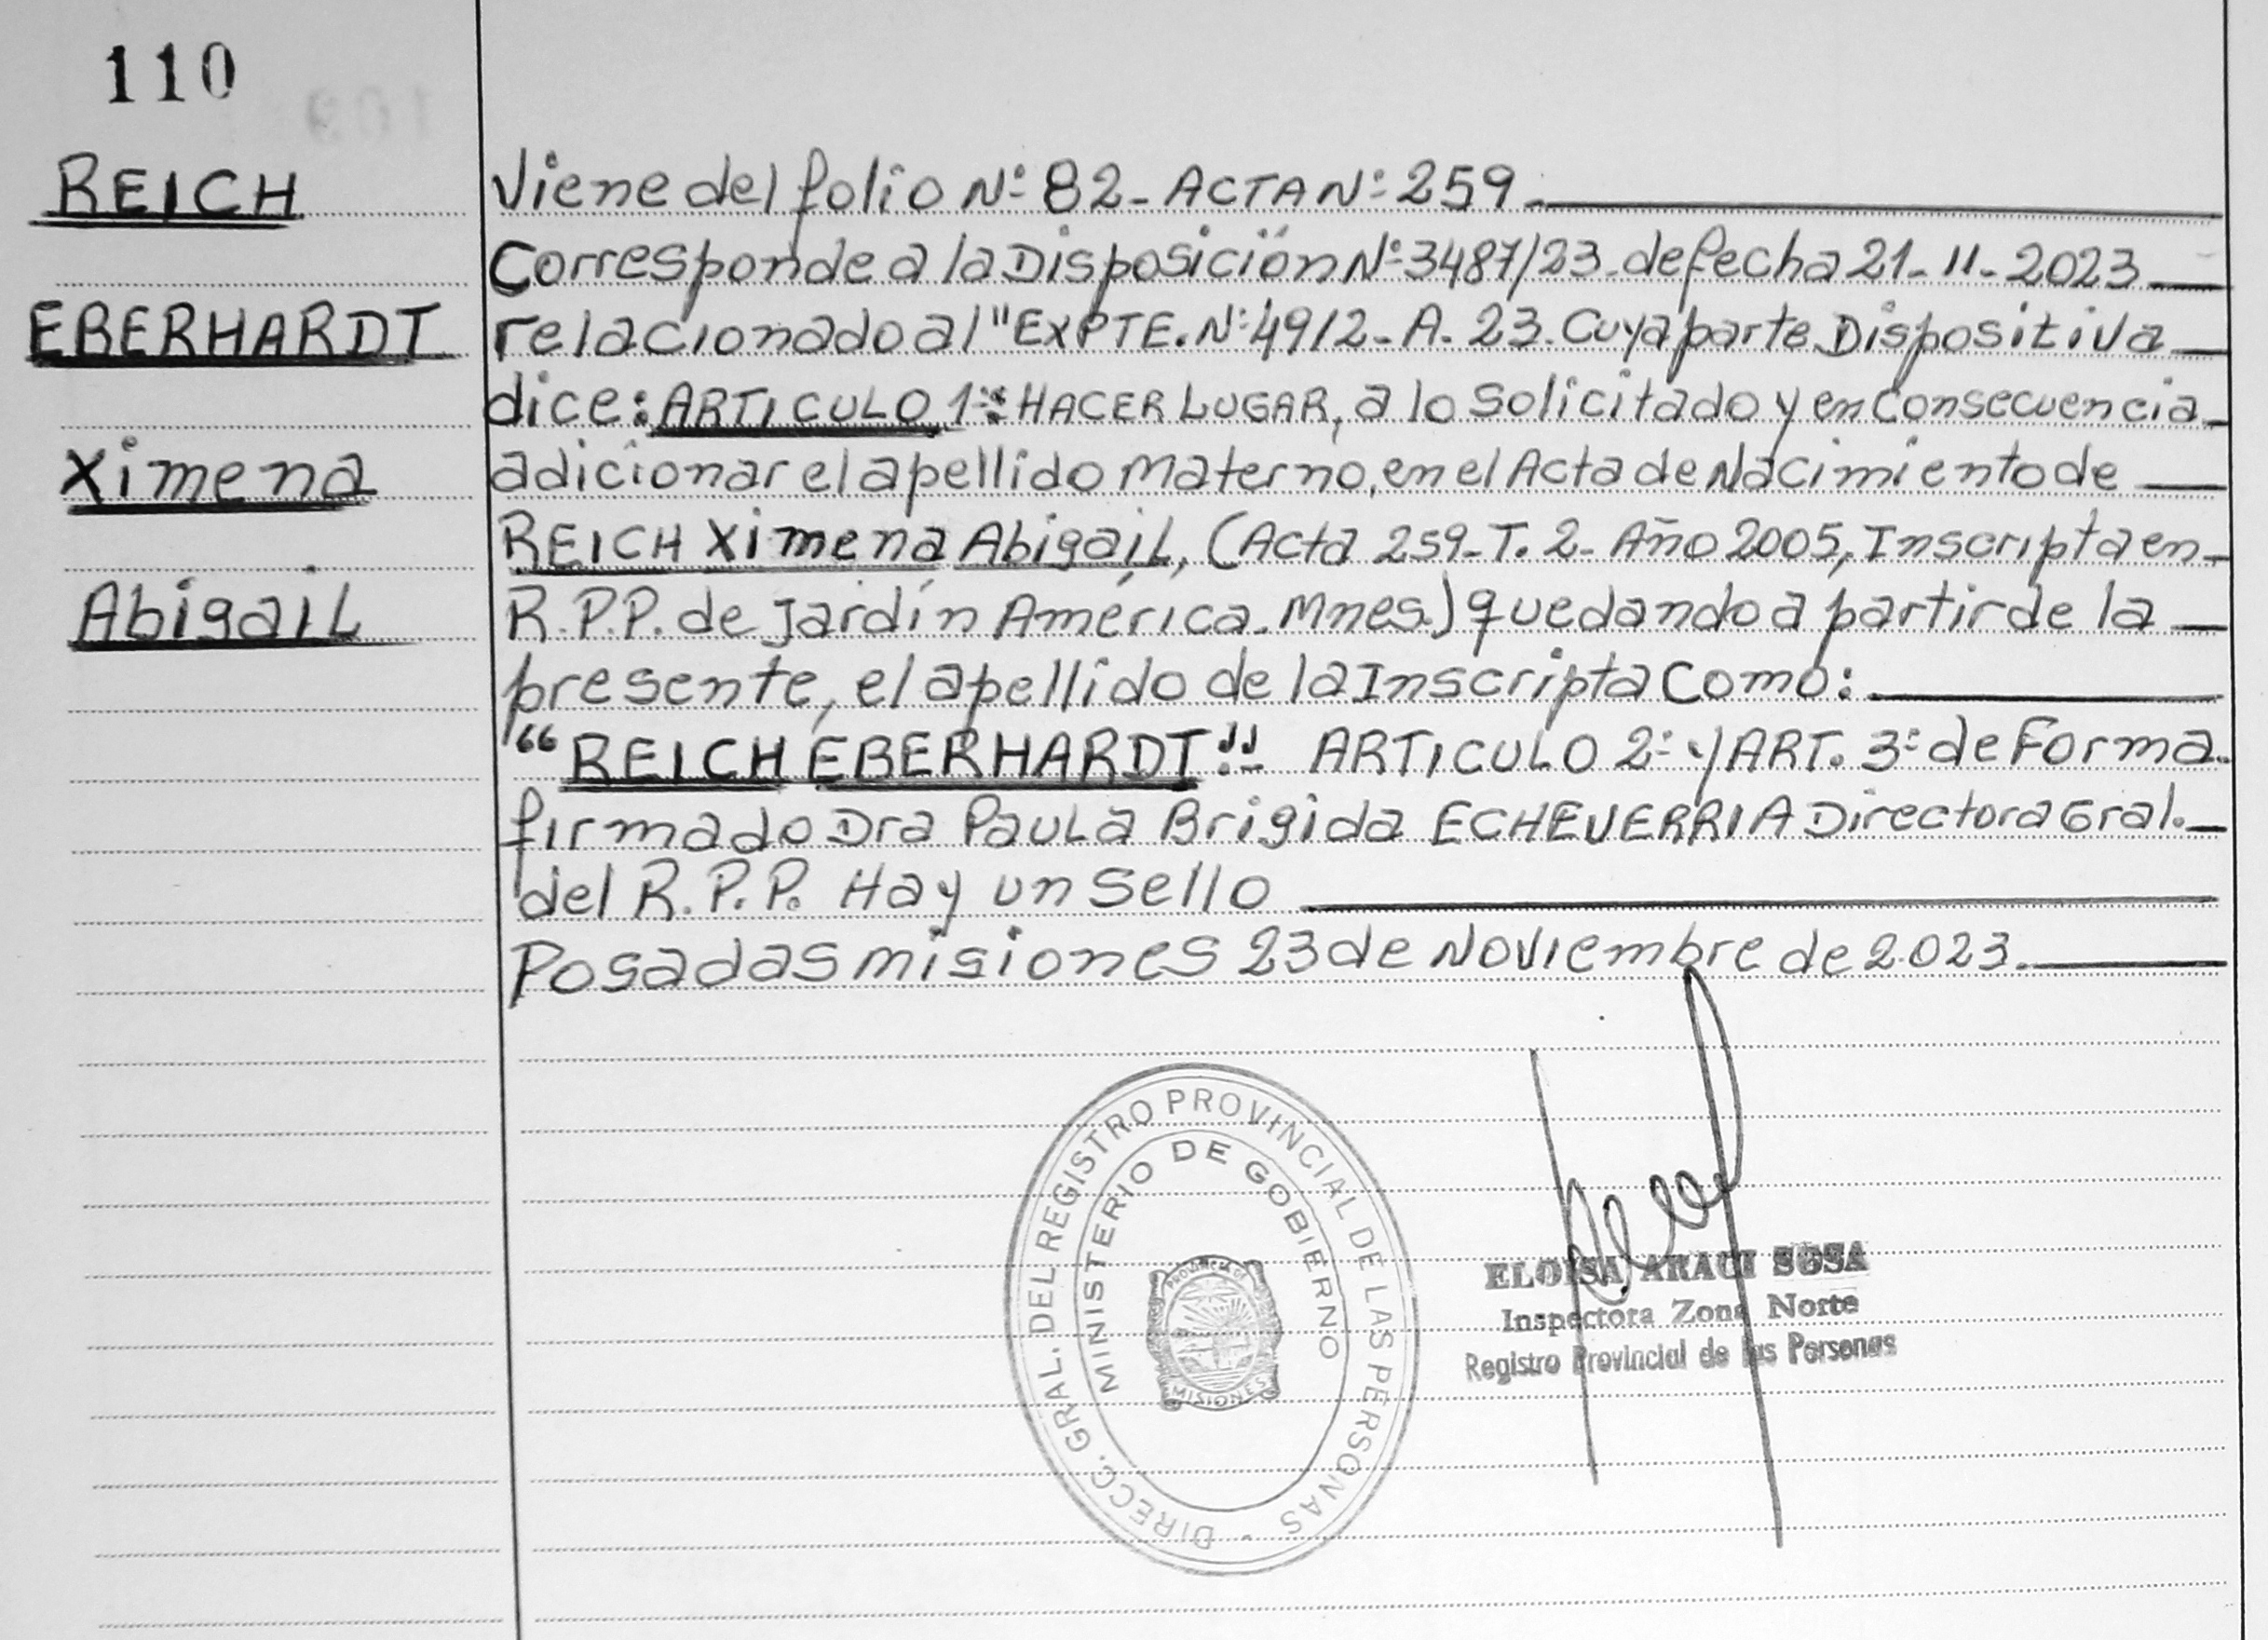 110
REICH
EBERHARDT
Ximena
Abigail
Viene del folio Nº 82 - ACTA Nº 259.
Corresponde a la Disposición Nº 3487/23. de fecha 21-11-2023
relacionado al "EXPTE. Nº 4912- A- 23. Cuya parte Dispositiva
dice: ARTICULO 1º: HACER LUGAR, a lo solicitado y en Consecuencia
adicionar el apellido Materno, en el Acta de Nacimiento de
REICH Ximena Abigail, (Acta 259-T. 2- Año 2005, Inscripta en
R.P.P. de Jardín América. Mnes.) quedando a partir de la
presente, el apellido de la Inscripta Como:
"REICH EBERHARDT". ARTICULO 2º y ART. 3º de Forma.
firmado Dra Paula Brigida ECHEVERRIA Directora Gral.
del R.P.P. Hay un Sello
Posadas misiones 23 de Noviembre de 2023.
DIRECC. GRAL. DEL REGISTRO PROVINCIAL DE LAS PERSONAS
MINISTERIO DE GOBIERNO
PROVINCIA DE
MISIONES
ELOISA ARACI SOSA
Inspectora Zona Norte
Registro Provincial de las Personas